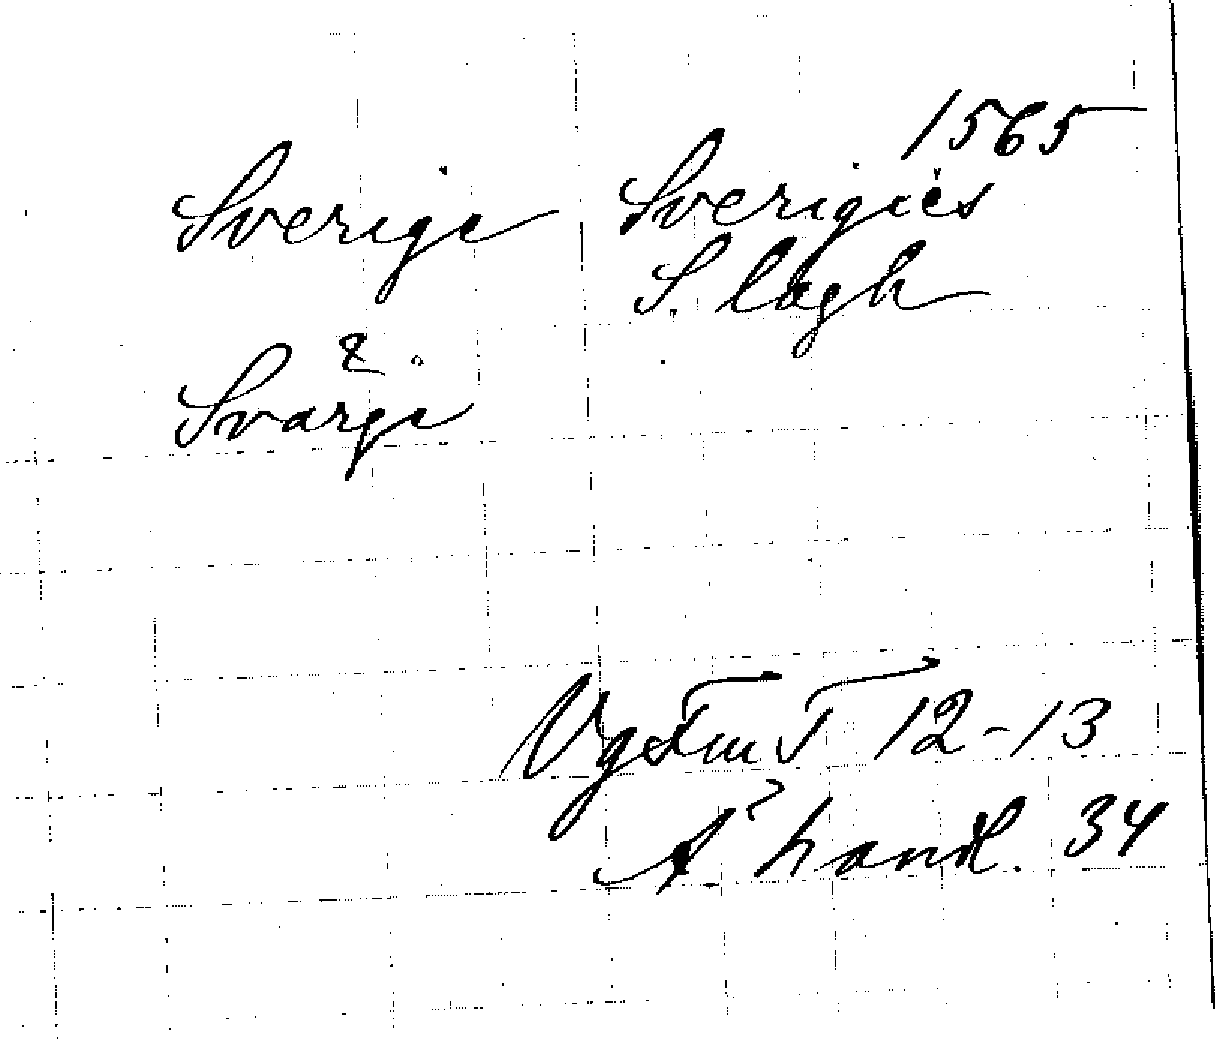 1565
Sverige Sverigiës
S. lagh
&
Svärge
VgFmT 12-13
A? handl. 34